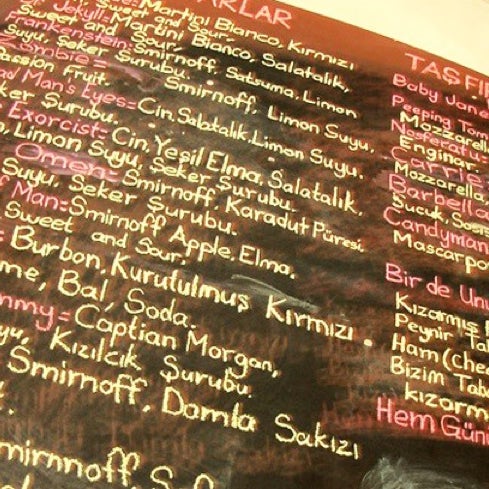 ARLAR
=Martini Bianco, Kırmızı
Sweet and Sour.
Jekyll=Martini Bianco, Salatalık,
Sweet and Sour.
Frankenstein=Smirnoff, Satsuma, Limon
Suyu, Şeker Şurubu.
Zombie= Smirnoff, Limon Suyu,
Passion Fruit.
Man's Eyes=Cin, Salatalık, Limon Suyu,
ker Şurubu.
Exorcist=Cin, Yeşil Elma, Salatalık,
Limon Suyu, Şeker Şurubu.
Omen=Smirnoff, Karadut Püresi,
Suyu, Şeker Şurubu.
Man=Smirnoff, Apple, Elma,
Sweet and Sour.
Burbon, Kurutulmuş Kırmızı
me, Bal, Soda.
mmy=Captian Morgan,
yu, Kızılcık Şurubu.
Smirnoff, Damla Sakızı
mirnnoff, S
TASFİ
Baby Jane
Peeping Tom
Mozzarell
Nosferatu=
Enginar.
Carrie
Mozzarella,
Barbella
Sucuk, Sosis
Candyman
Mascarpo
Bir de Unu
Kızarmış
Peynir Tab
Ham(Che
Bizim Tab
kızarm
Hem Gün